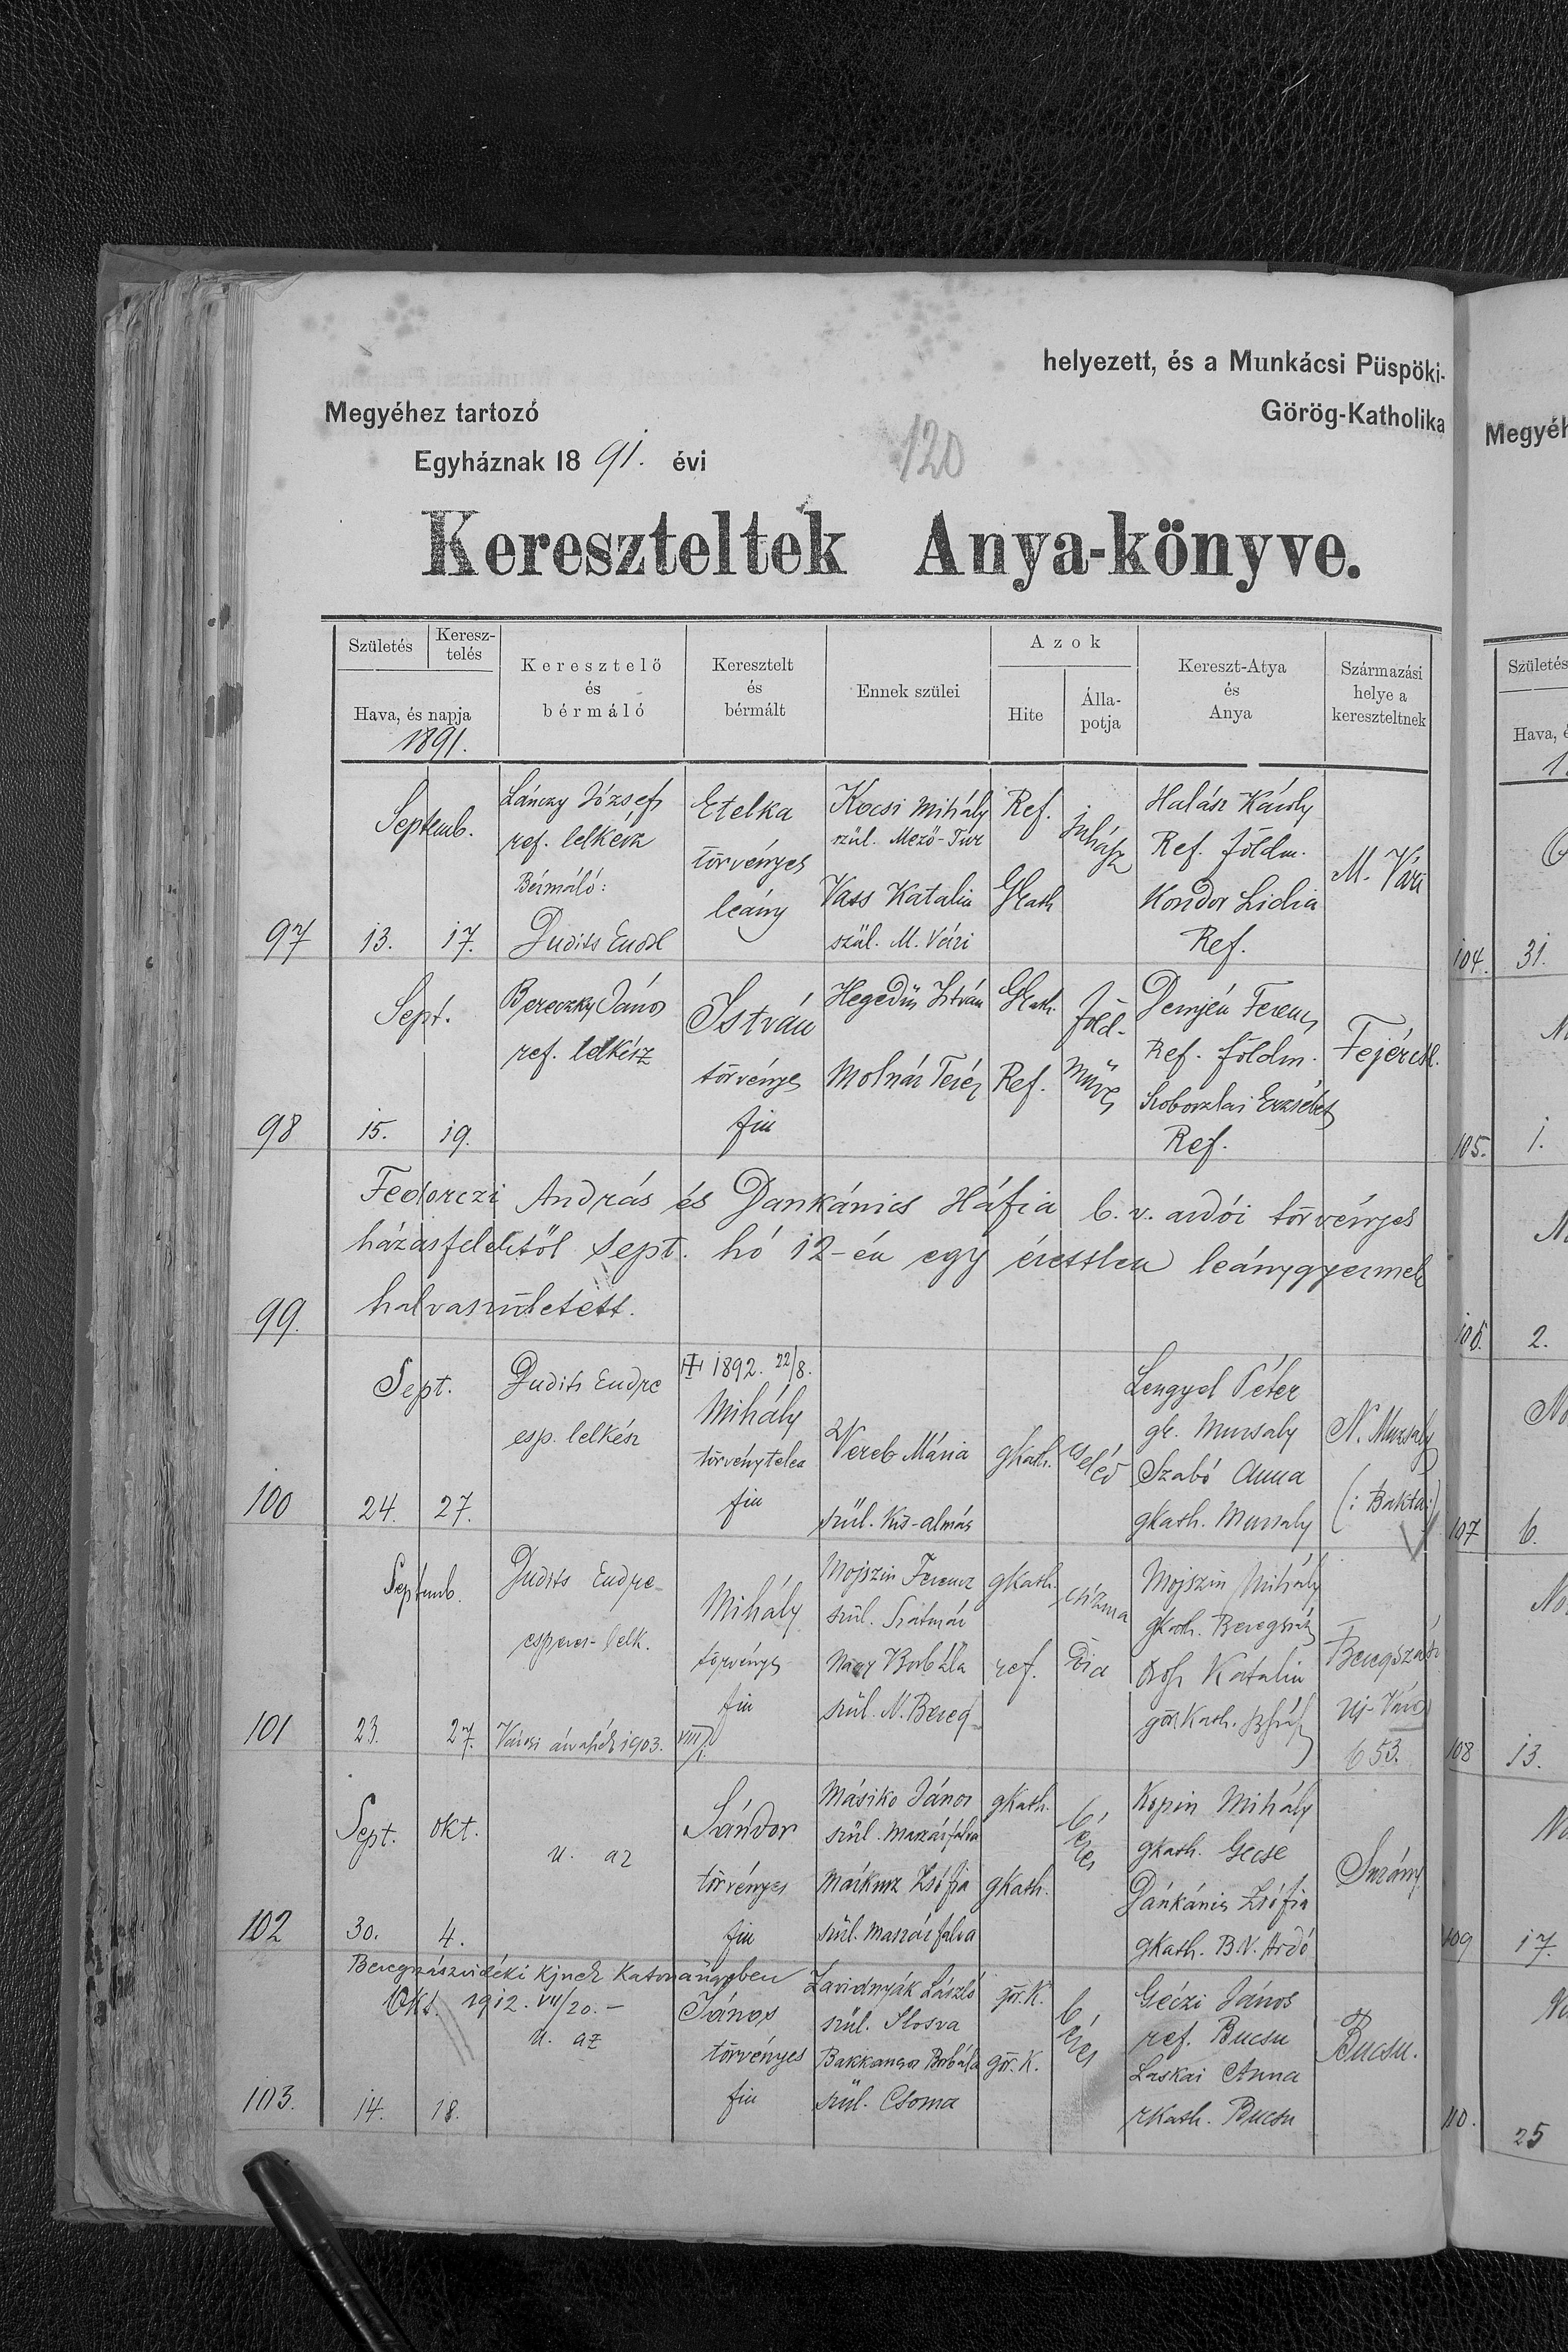 helyezett, és a Munkácsi Püspöki-
Megyéhez tartozó
Görög-Katholika
Egyháznak 1891. évi
120
Kereszteltek Anya-könyve.
Születés
Keresz-
telés
Hava, és napja
1891.
Keresztelő
és
bérmáló
Keresztelt
és
bérmált
Ennek szülei
Azok
Hite
Álla-
potja
Kereszt-Atya
és
Anya
Származási
helye a
kereszteltnek
97
Septemb.
13. 17.
Lánczy József
ref. lelkész
Bérmáló:
Gudits Endre
Etelka
törvényes
leány
Kocsi Mihály
szül. Mező-Tur
Vass Katalin
szül. M. Vári
Ref.
GKath
juhász
Halász Károly
Ref. földm.
Kondor Lidia
Ref.
M. Vári
98
Sept.
15. 19.
Bereczky János
ref. lelkész
István
törvényes
fiu
Hegedüs István
Molnár Teréz
GKath.
Ref.
Föld-
müves
Demjén Ferencz
Ref. földm.
Szoboszlai Erzsébet
Ref.
Fejércse.
99.
Fedorczi András és Dankánics Háfia b. v. ardói törvényes
házasfelektől Sept. hó 12-én egy éretlen leánygyermek
halvaszületett.
100
Sept.
24. 27.
Gudits Endre
esp. lelkész
1892. 22/8.
Mihály
törvénytelen
fiu
Vereb Mária
szül. Kis-almás
gkath.
cseléd
Lengyel Péter
gk. Muzsaly
Szabó Anna
gkath. Muzsaly
N. Muzsaly
(: Bakta:)
101
Septemb.
23. 27.
Gudits Endre
esperes-lelk.
Városi árvaszék 1903. VIII/1.
Mihály
törvényes
fiu
Mojszin Ferencz
szül. Szatmár
Nagy Borbála
szül. N. Bereg
gkath.
ref.
csizma
dia
Mojszin Mihály
gkath. Beregszász
Katalin
gör. Kath.
Beregszász
Uj-Város
653.
102
Sept. okt.
30. 4.
u. az
Sándor
törvényes
fiu
Másiko János
szül. Maszárfalva
Márkusz Zsófia
szül. Maszárfalva
gkath.
gkath.
béres
Kopin Mihály
gkath. Gecse
Dánkánics Zsófia
gkath. B.V. Ardó
Surány
103.
Beregszászvidéki kjnek katonaügyben
Okt. 1912. VII/20.-
14. 18.
u. az
János
törvényes
fiu
Zavidnyák László
szül. Ilosva
Borbála
szül. Csoma
gör. K.
gör. K.
béres
Géczi János
ref. Bucsu
Laskai Anna
rkath. Bucsu
Bucsu.
Megyéh
Születés
Hava, é
1
104. 31.
105. 1.
106. 2.
107 6.
108 13.
109 17.
110. 25